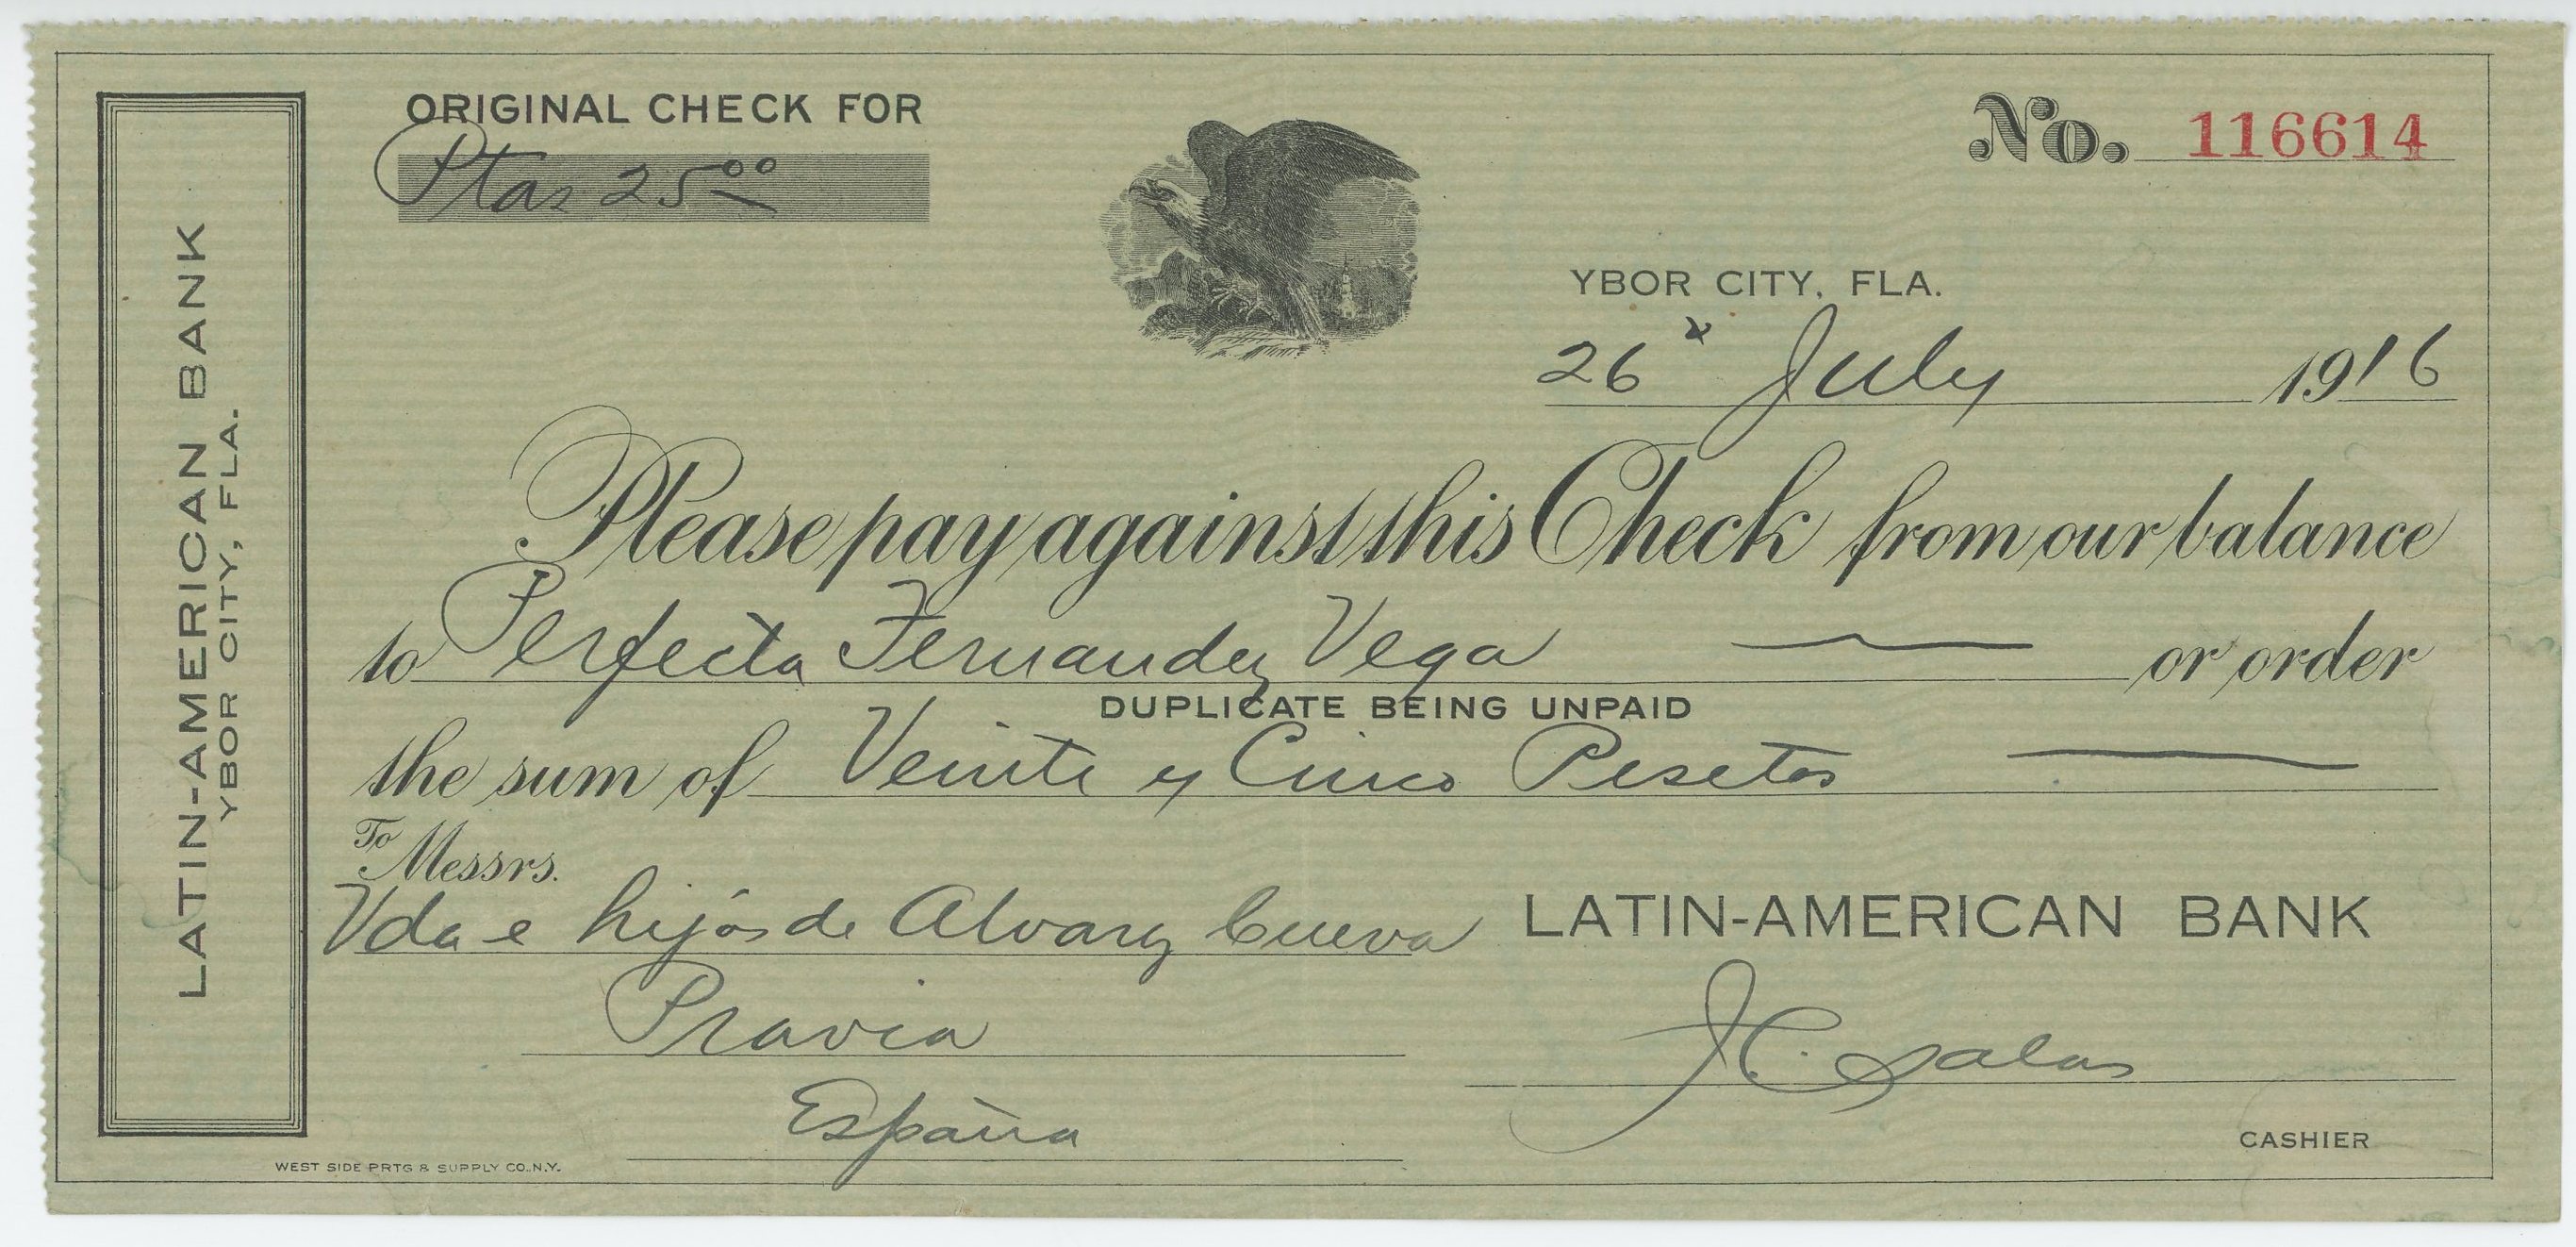 LATIN-AMERICAN BANK
YBOR CITY, FLA.
ORIGINAL CHECK FOR
Ptas 25 00
No. 116614
YBOR CITY, FLA.
26 July 1916
Please pay against this Check from our balance
to Perfecta Fernandez Vega or order
DUPLICATE BEING UNPAID
the sum of Veinte y Cinco Pesetas
To Messrs.
Vda e hijos de Alvarez Cueva
LATIN-AMERICAN BANK
Pravia
J C. Salas
España
CASHIER
WEST SIDE PRTG & SUPPLY CO. N.Y.